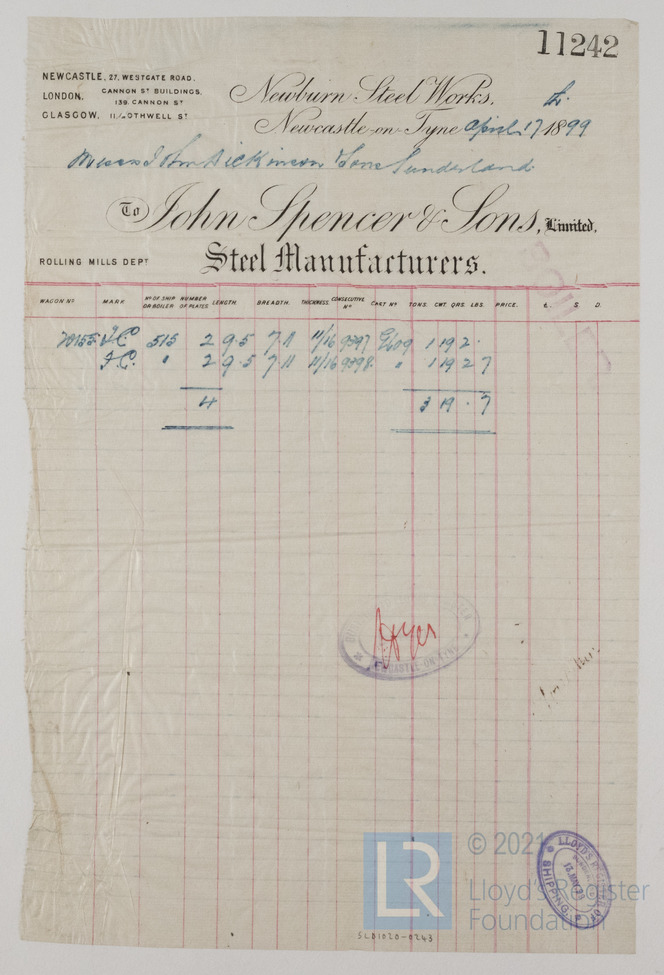 11242
NEWCASTLE, 27, WESTGATE ROAD.
LONDON, CANNON ST BUILDINGS, 139, CANNON ST
GLASGOW, BOTHWELL ST
Newburn Steel Works,
Newcastle-on-Tyne April 17th 1899
Messrs John Dickinson & Sons Sunderland
To John Spencer & Sons, Limited,
Steel Manufacturers.
ROLLING MILLS DEPT
WAGON Nº MARK Nº OF SHIP OR BOILER NUMBER OF PLATES LENGTH. BREADTH. THICKNESS. CONSECUTIVE Nº CAST Nº TONS. CWT. QRS. LBS. PRICE. £. S. D.
515 2 9.5 7.11 11/16 9397 9609 1 19 2 .
" 2 9.5 7.11 11/16 9398 " 1 19 2 7
4 3 19 . 7
NEWCASTLE-ON-TYNE
LLOYD'S REGISTER OF SHIPPING
LR © 2021
Lloyd's Register
Foundation
SLD1020-0243